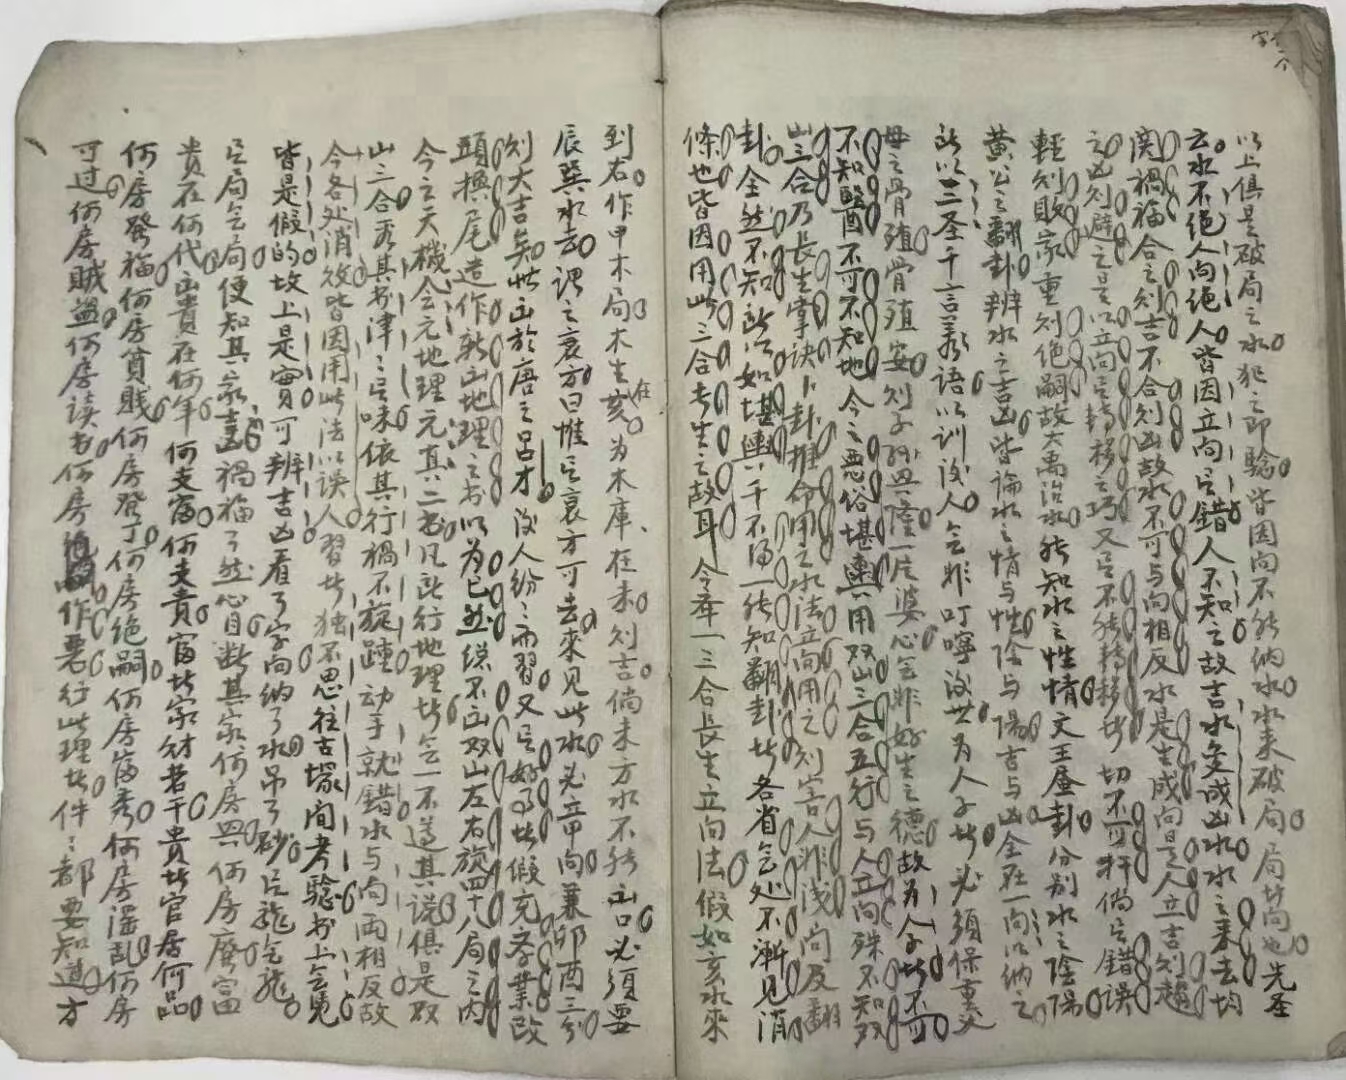 以上俱是破局之水犯之即驗皆因向不能納水水來破局局者向也先圣
云水不绝人向绝人皆因立向之錯人不知之故吉水変成凶水水之来去均
関禍福合之则吉不合则凶故水不可与向相反水是生成向是人立吉则趨
之凶则避之是以立向之轉移之巧又之不能轉移者切不可扦倘之錯误
輕则敗家重则绝嗣故大禹治水能知水之性情文王叠卦分别水之陰陽
黄公之翻卦辨水之吉凶皆論水之情与性陰与陽吉与凶全在一向以納之
所以三圣千言萬语以训後人令非叮嚀後世为人子者必须保重父
母之骨殖骨殖安则子孙興隆一片婆心令非好生之德故为人子者不可
不知醫不可不知地今之恶俗堪輿用双山三合五行与人立向殊不知双
山三合乃長生掌诀卜卦推命用之水法立向用之则害人非浅向及翻
卦全然不知所以如堪輿千不得一能知翻卦者各省各处不漸见消
條也皆因用此三合长生之故耳今奉一三合長生立向法假如亥水來
到右作甲木局木生在亥为木庫在未则吉倘未方水不能出口必须要
辰巽水去謂之衰方曰惟之衰方可去來见此水必立甲向兼卯酉三分
则大吉矣此出於唐之吕才後人纷之而習又之好事者假充夸業改
頭換尾造作新山地理之书以为已然總不出双山左右旋四十八局之内
今之天機会元地理元真二书凡此行地理者令一不遵其说俱是双
山三合弄其书津之之味依其行禍不旋踵动手就錯水与向両相反故
今各处消败皆因用此法以误人習者独不思往古塚间考驗书上令寛
皆是假的坟上是實可辨吉凶看了字向納了水吊了砂之龍令龍
之局令局便知其家吉凶禍福了然心目断其家何房興何房廃富
贵在何代出贵在何年何支富何支贵富者家财若干贵者官居何品
何房發福何房貧賎何房發丁何房绝嗣何房富秀何房淫乱何房
可过何房贼盗何房读书何房作悪行此理者件之都要知道方